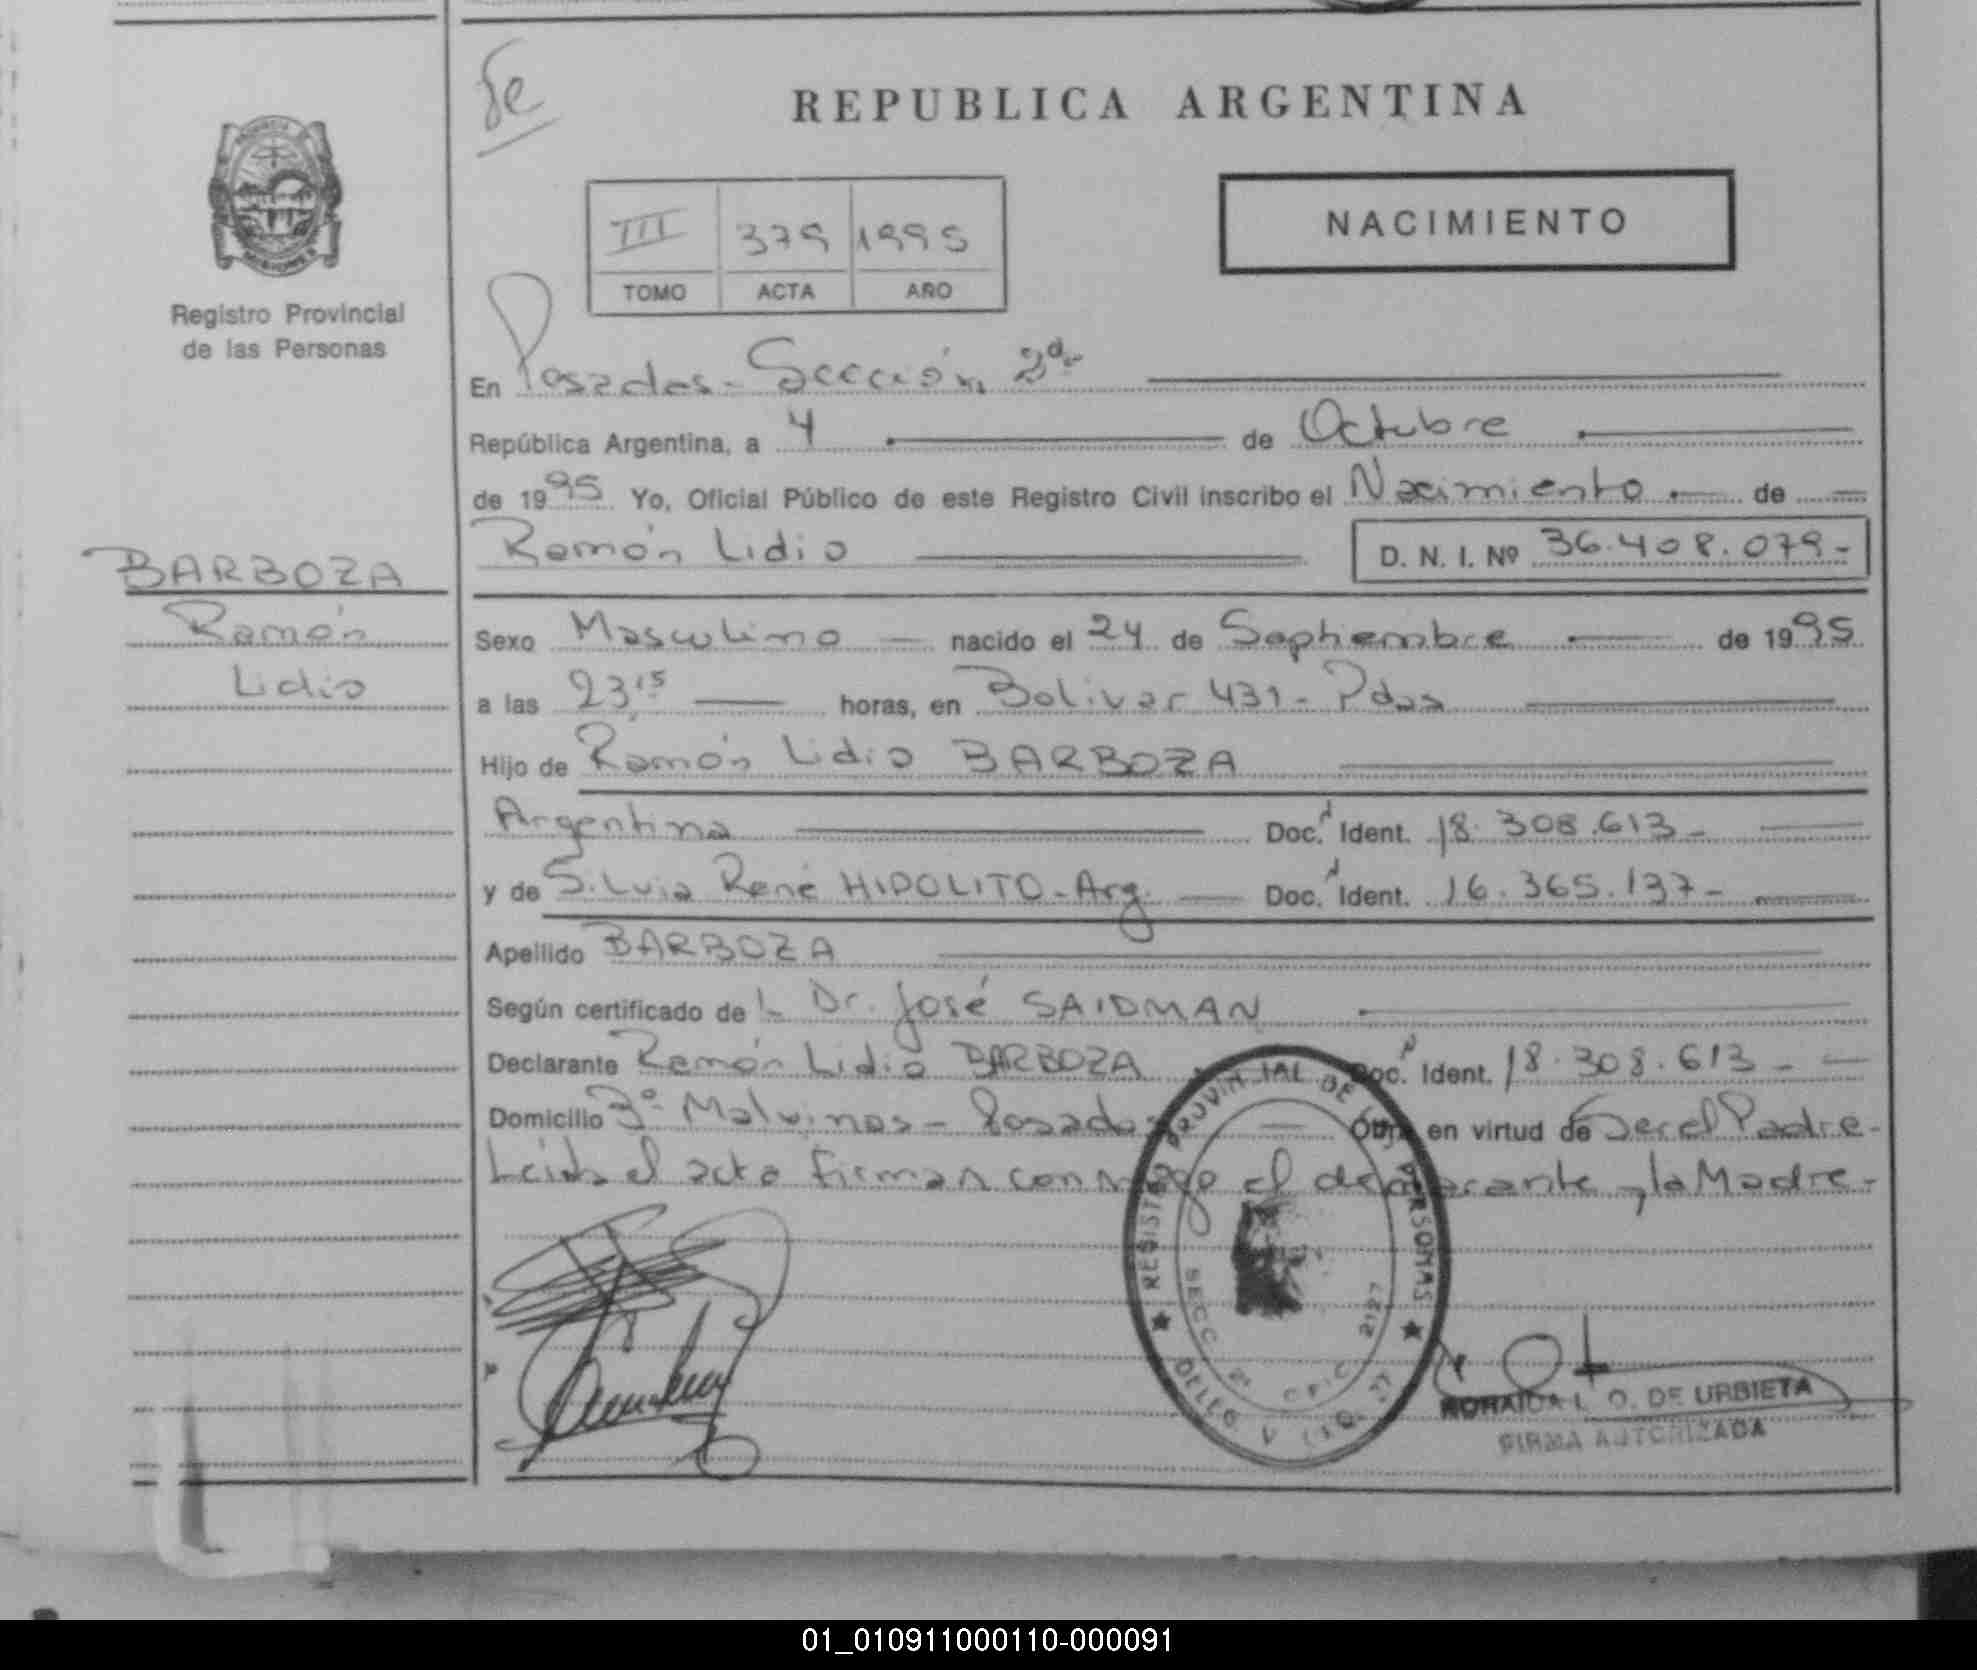 Se
REPUBLICA ARGENTINA
NACIMIENTO
III 379 1995
TOMO ACTA AÑO
Registro Provincial
de las Personas
En Posadas - Sección 2da
República Argentina, a 4 de Octubre
de 1995 Yo, Oficial Público de este Registro Civil inscribo el Nacimiento de
Ramón Lidio D. N. I. Nº 36.408.079-
BARBOZA
Ramón
Lidio
Sexo Masculino nacido el 24 de Septiembre de 1995
a las 23,15 horas, en Bolivar 431 - Pdas
Hijo de Ramón Lidio BARBOZA
Argentina Doc. Ident. 18.308.613-
y de Silvia René HIPOLITO - Arg. Doc. Ident. 16.365.137-
Apellido BARBOZA
Según certificado de l Dr. José SAIDMAN
Declarante Ramón Lidio BARBOZA Doc. Ident. 18.308.613-
Domicilio Bº Malvinas - Posadas Obra en virtud de Ser el Padre-
Leída el acta firman conmigo el declarante y la Madre-
REGISTRO PROVINCIAL DE LAS PERSONAS
SECC 2ª OFIC 2127
L. O. DE URBIETA
FIRMA AUTORIZADA
01_010911000110-000091